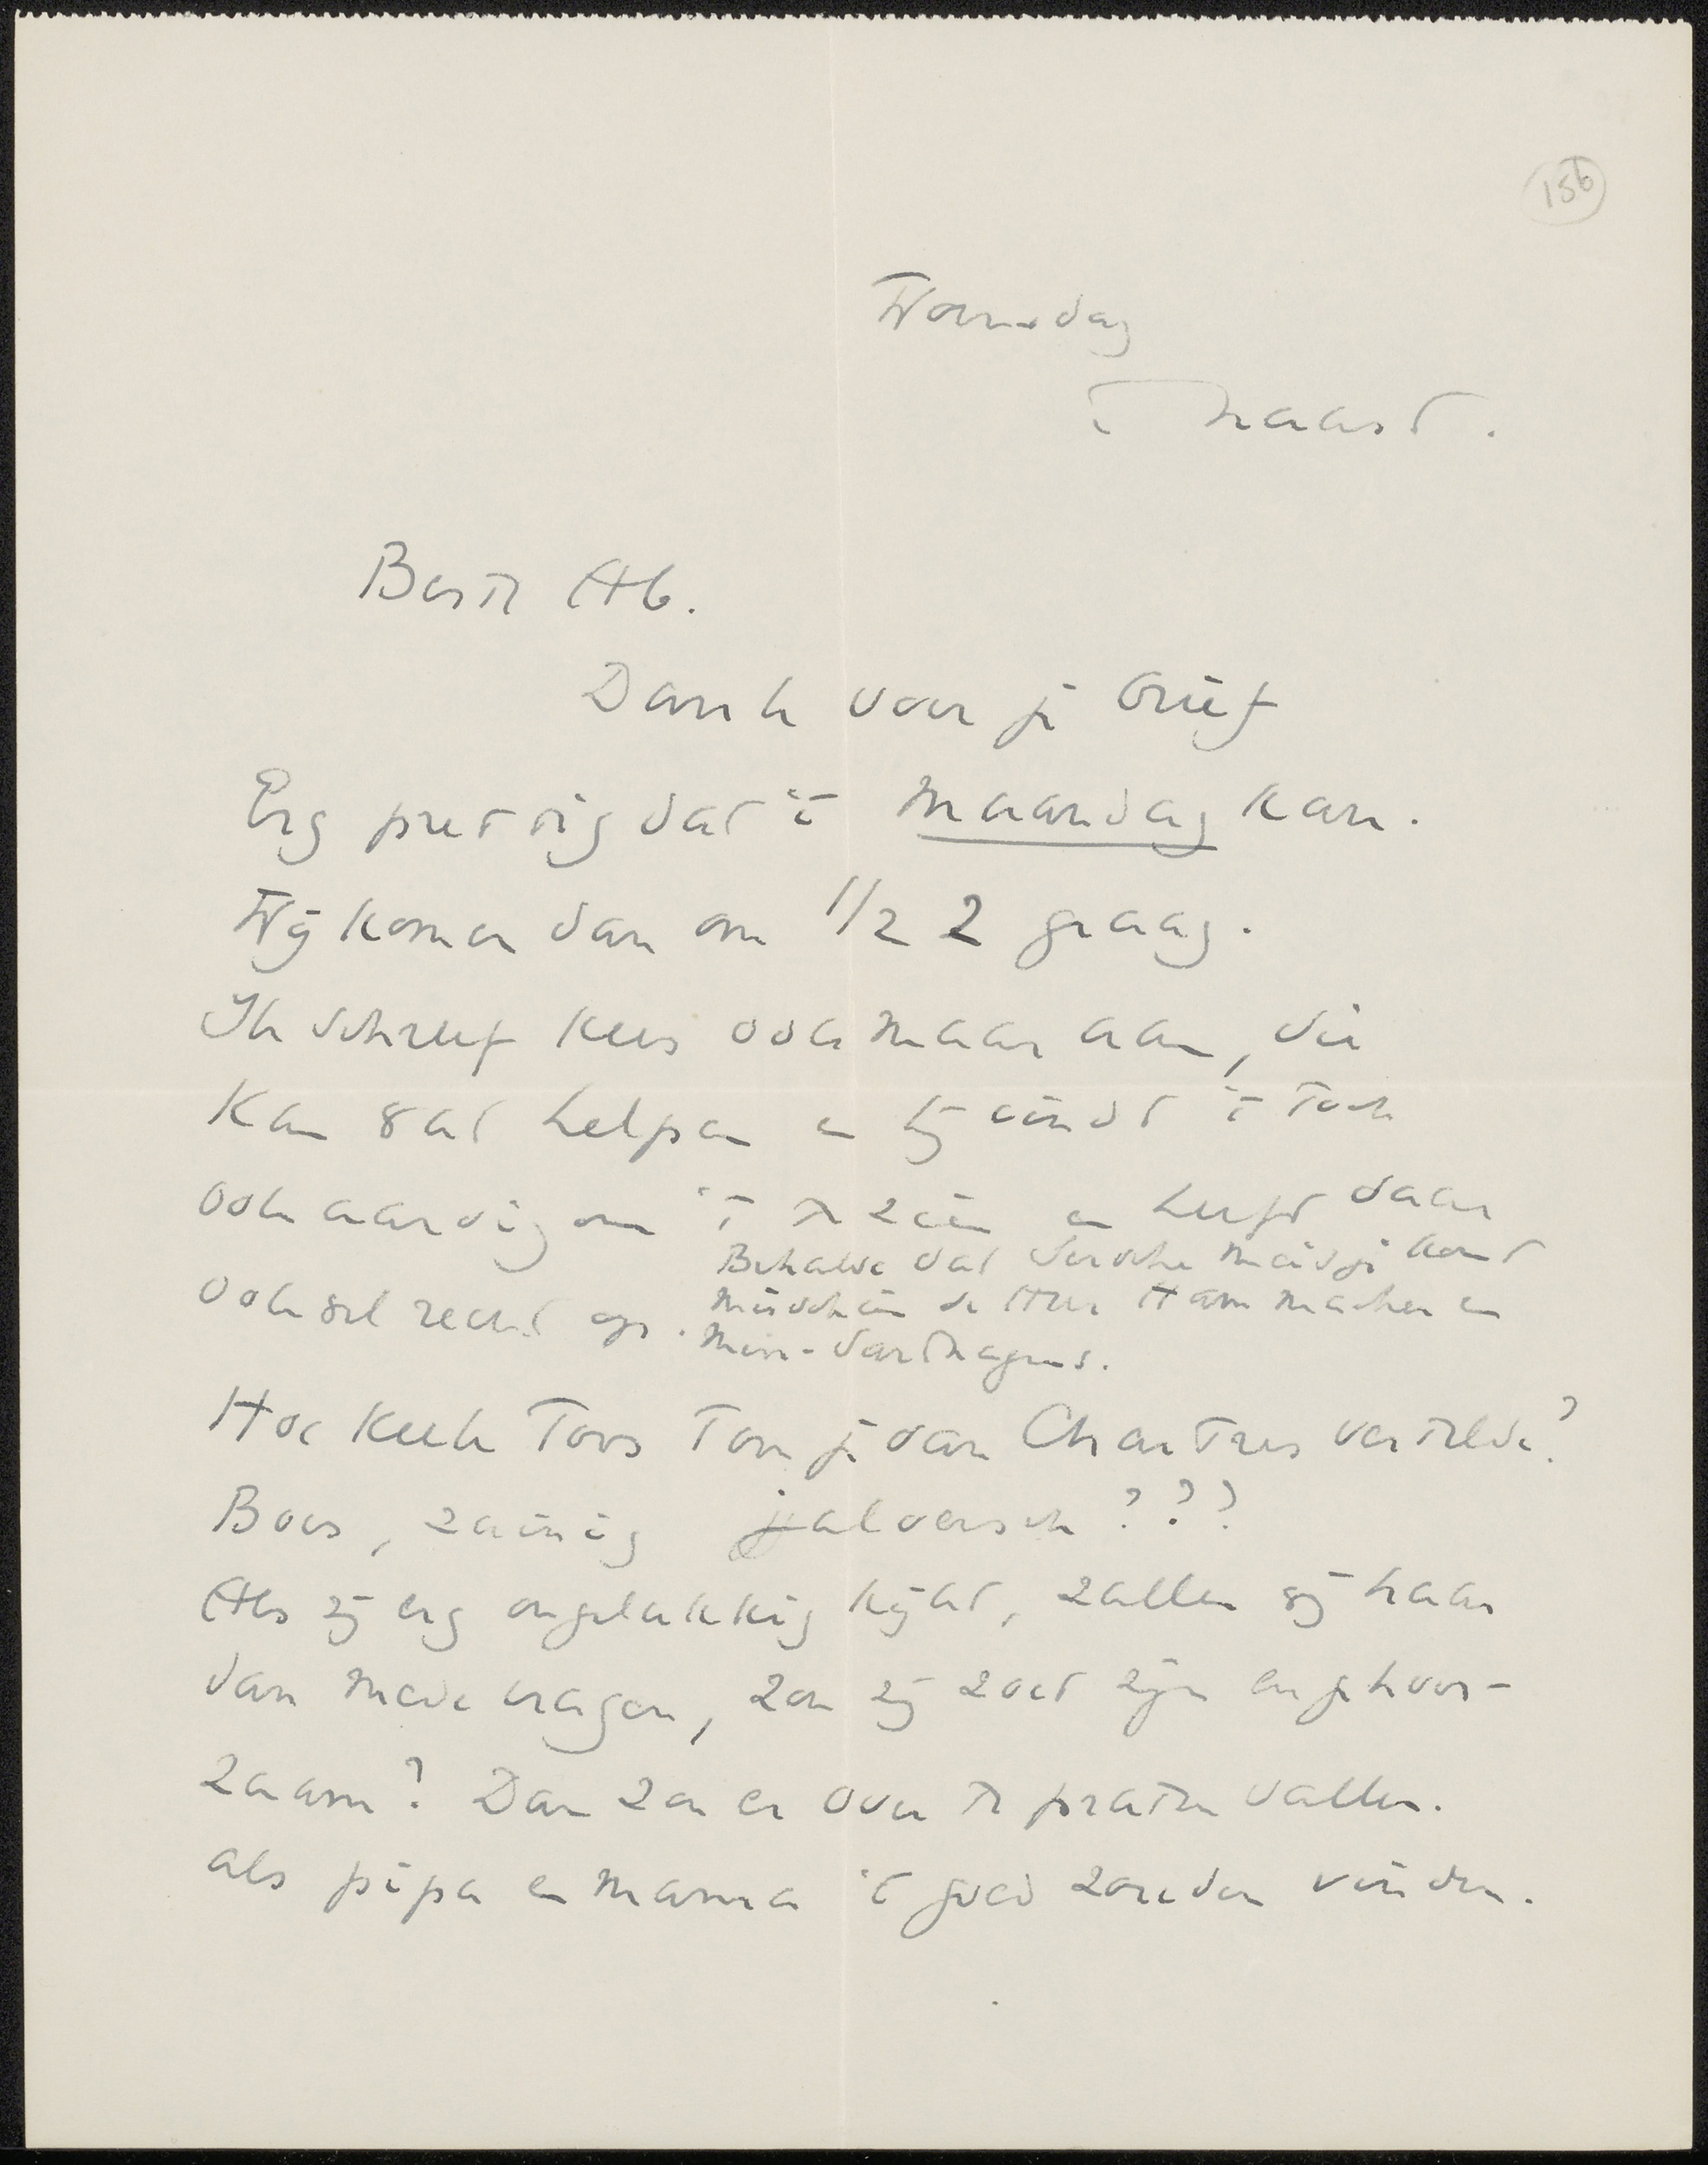 156
Woensdag
i haast.
Beste Ab.
Dank voor je brief
Erg prettig dat 't Maandag kan.
Wij komen dan om 1/2 2 graag.
Ik schreef Kees ook maar aan, die
kan wat helpen en hij vindt 't toch
ook aardig om 't te zien en heeft daar
ook wel recht op.
Behalve dat Deensche meisje komt
misschien de Heer Hammacher en
Mevr.
Hoe keek Toos toen je van Chartres vertelde?
Boos, zuinig jaloersch???
Als zij erg ongelukkig kijkt, zullen wij haar
dan mede vragen, zou zij zoet zijn en gehoor-
zaam? Dan zou er over te praten vallen.
als pipa en mama 't goed zouden vinden.